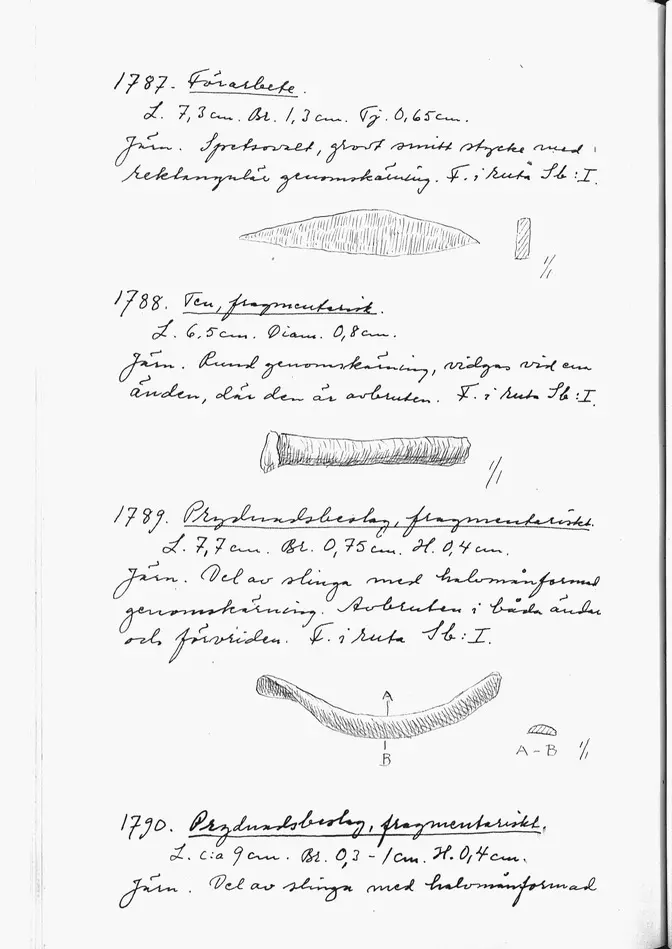 1787. Förarbete.
L. 7,3 cm. Br. 1,3 cm. Tj. 0,65 cm.
Järn. Spetsovalt, grovt smitt stycke med
rektangulär genomskärning. F. i ruta Sb:I.
1/1
1788. Ten, fragmentarisk.
L. 6,5 cm. Diam. 0,8 cm.
Järn. Rund genomskärning, vidgas vid ena
änden, där den är avbruten. F. i ruta Sb:I.
1/1
1789. Prydnadsbeslag, fragmentariskt.
L. 7,7 cm. Br. 0,75 cm. H. 0,4 cm.
Järn. Del av slinga med halvmånformad
genomskärning. Avbruten i båda ändar
och förvriden. F. i ruta Sb:I.
A
B
A - B 1/1
1790. Prydnadsbeslag, fragmentariskt.
L. c:a 9 cm. Br. 0,3 - 1 cm. H. 0,4 cm.
Järn. Del av slinga med halvmånformad